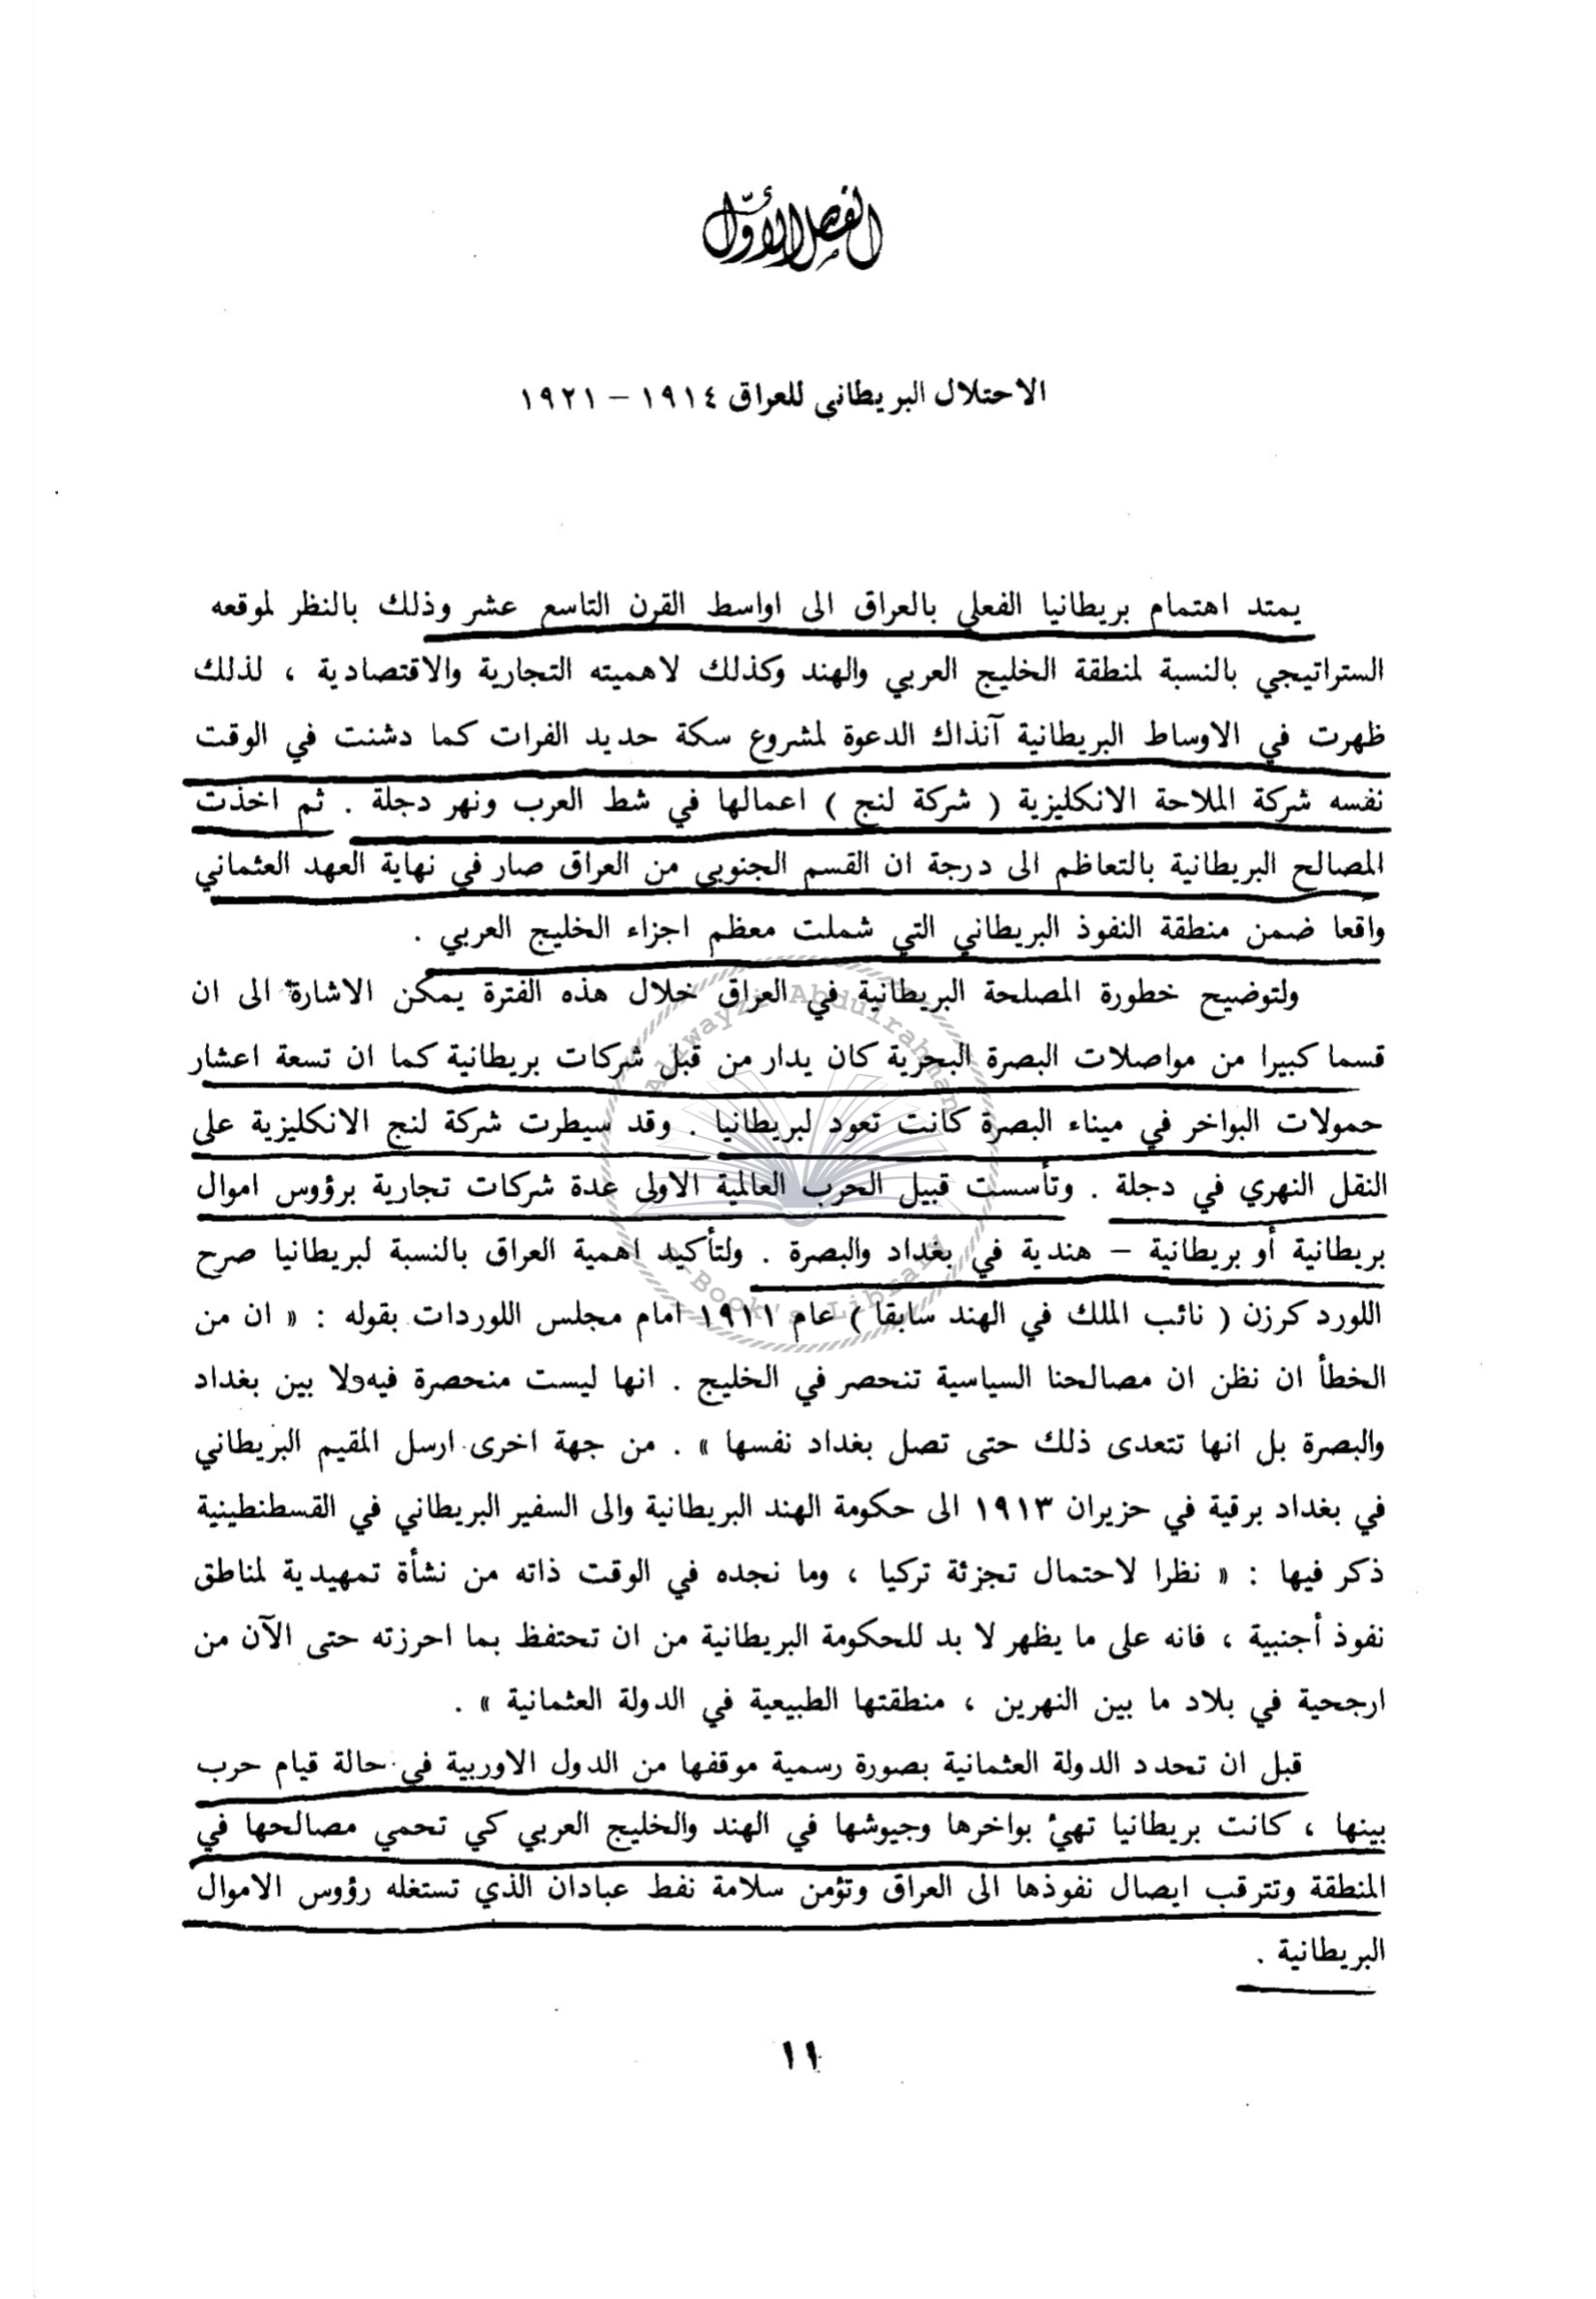 الفصل الأوّل
الاحتلال البريطاني للعراق ١٩١٤ – ١٩٢١
يمتد اهتمام بريطانيا الفعلي بالعراق الى اواسط القرن التاسع عشر وذلك بالنظر لموقعه
الستراتيجي بالنسبة لمنطقة الخليج العربي والهند وكذلك لاهميته التجارية والاقتصادية ، لذلك
ظهرت في الاوساط البريطانية آنذاك الدعوة لمشروع سكة حديد الفرات كما دشنت في الوقت
نفسه شركة الملاحة الانكليزية ( شركة لنج ) اعمالها في شط العرب ونهر دجلة . ثم اخذت
المصالح البريطانية بالتعاظم الى درجة ان القسم الجنوبي من العراق صار في نهاية العهد العثماني
واقعا ضمن منطقة النفوذ البريطاني التي شملت معظم اجزاء الخليج العربي .
ولتوضيح خطورة المصلحة البريطانية في العراق خلال هذه الفترة يمكن الاشارة الى ان
قسما كبيرا من مواصلات البصرة البحرية كان يدار من قبل شركات بريطانية كما ان تسعة اعشار
حمولات البواخر في ميناء البصرة كانت تعود لبريطانيا . وقد سيطرت شركة لنج الانكليزية على
النقل النهري في دجلة . وتأسست قبيل الحرب العالمية الاولى عدة شركات تجارية برؤوس اموال
بريطانية أو بريطانية – هندية في بغداد والبصرة . ولتأكيد اهمية العراق بالنسبة لبريطانيا صرح
اللورد كرزن ( نائب الملك في الهند سابقا ) عام ١٩١١ امام مجلس اللوردات بقوله : « ان من
الخطأ ان نظن ان مصالحنا السياسية تنحصر في الخليج . انها ليست منحصرة فيه ولا بين بغداد
والبصرة بل انها تتعدى ذلك حتى تصل بغداد نفسها » . من جهة اخرى ارسل المقيم البريطاني
في بغداد برقية في حزيران ١٩١٣ الى حكومة الهند البريطانية والى السفير البريطاني في القسطنطينية
ذكر فيها : « نظرا لاحتمال تجزئة تركيا ، وما نجده في الوقت ذاته من نشأة تمهيدية لمناطق
نفوذ أجنبية ، فانه على ما يظهر لا بد للحكومة البريطانية من ان تحتفظ بما احرزته حتى الآن من
ارجحية في بلاد ما بين النهرين ، منطقتها الطبيعية في الدولة العثمانية » .
قبل ان تحدد الدولة العثمانية بصورة رسمية موقفها من الدول الاوربية في حالة قيام حرب
بينها ، كانت بريطانيا تهيئ بواخرها وجيوشها في الهند والخليج العربي كي تحمي مصالحها في
المنطقة وتترقب ايصال نفوذها الى العراق وتؤمن سلامة نفط عبادان الذي تستغله رؤوس الاموال
البريطانية .
١١